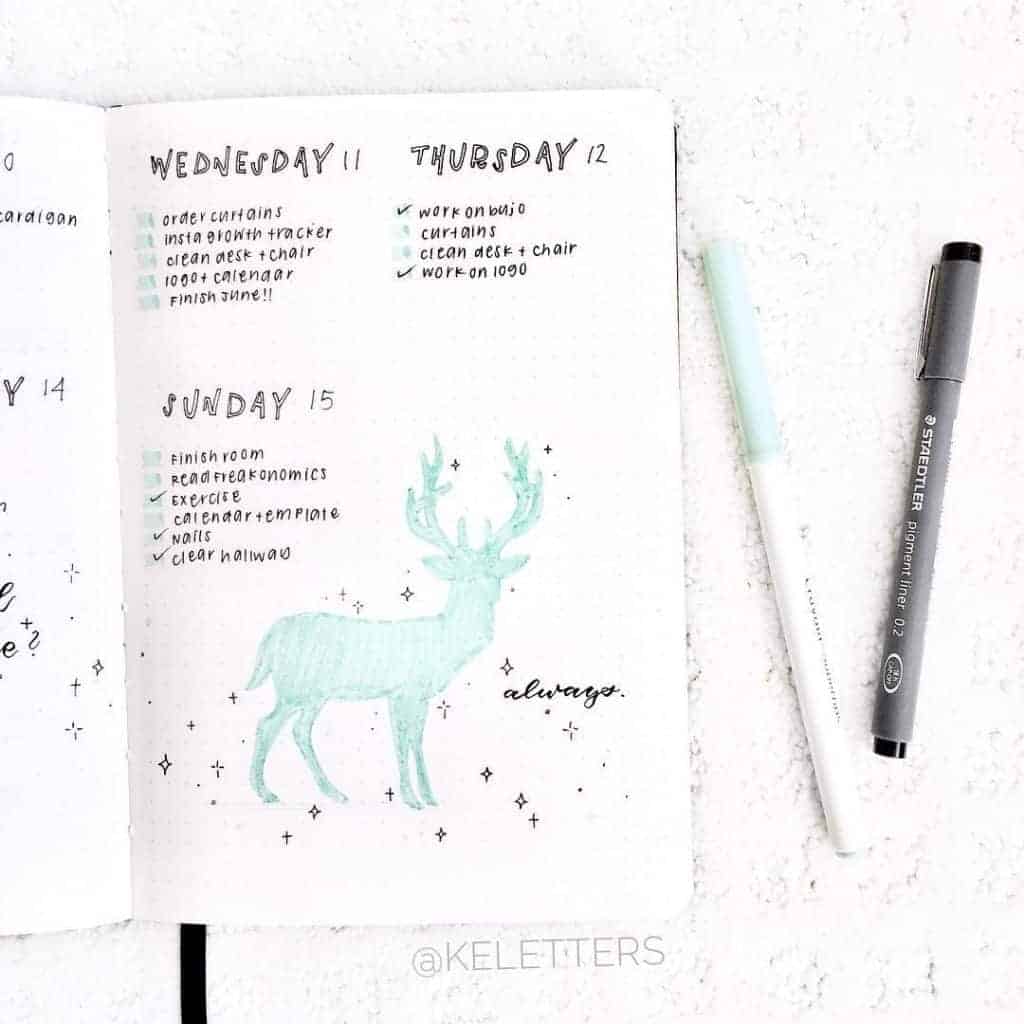 0
cardigan
Y 14
e?
WEDNESDAY 11
order curtains
insta growth tracker
clean desk + chair
logo + calendar
finish june!!
THURSDAY 12
✓ work on bujo
curtains
clean desk + chair
✓ work on logo
SUNDAY 15
finish room
read freakonomics
✓ exercise
calendar template
✓ nails
✓ clear hallway
always.
STAEDTLER
pigment liner 0.2
@KELETTERS